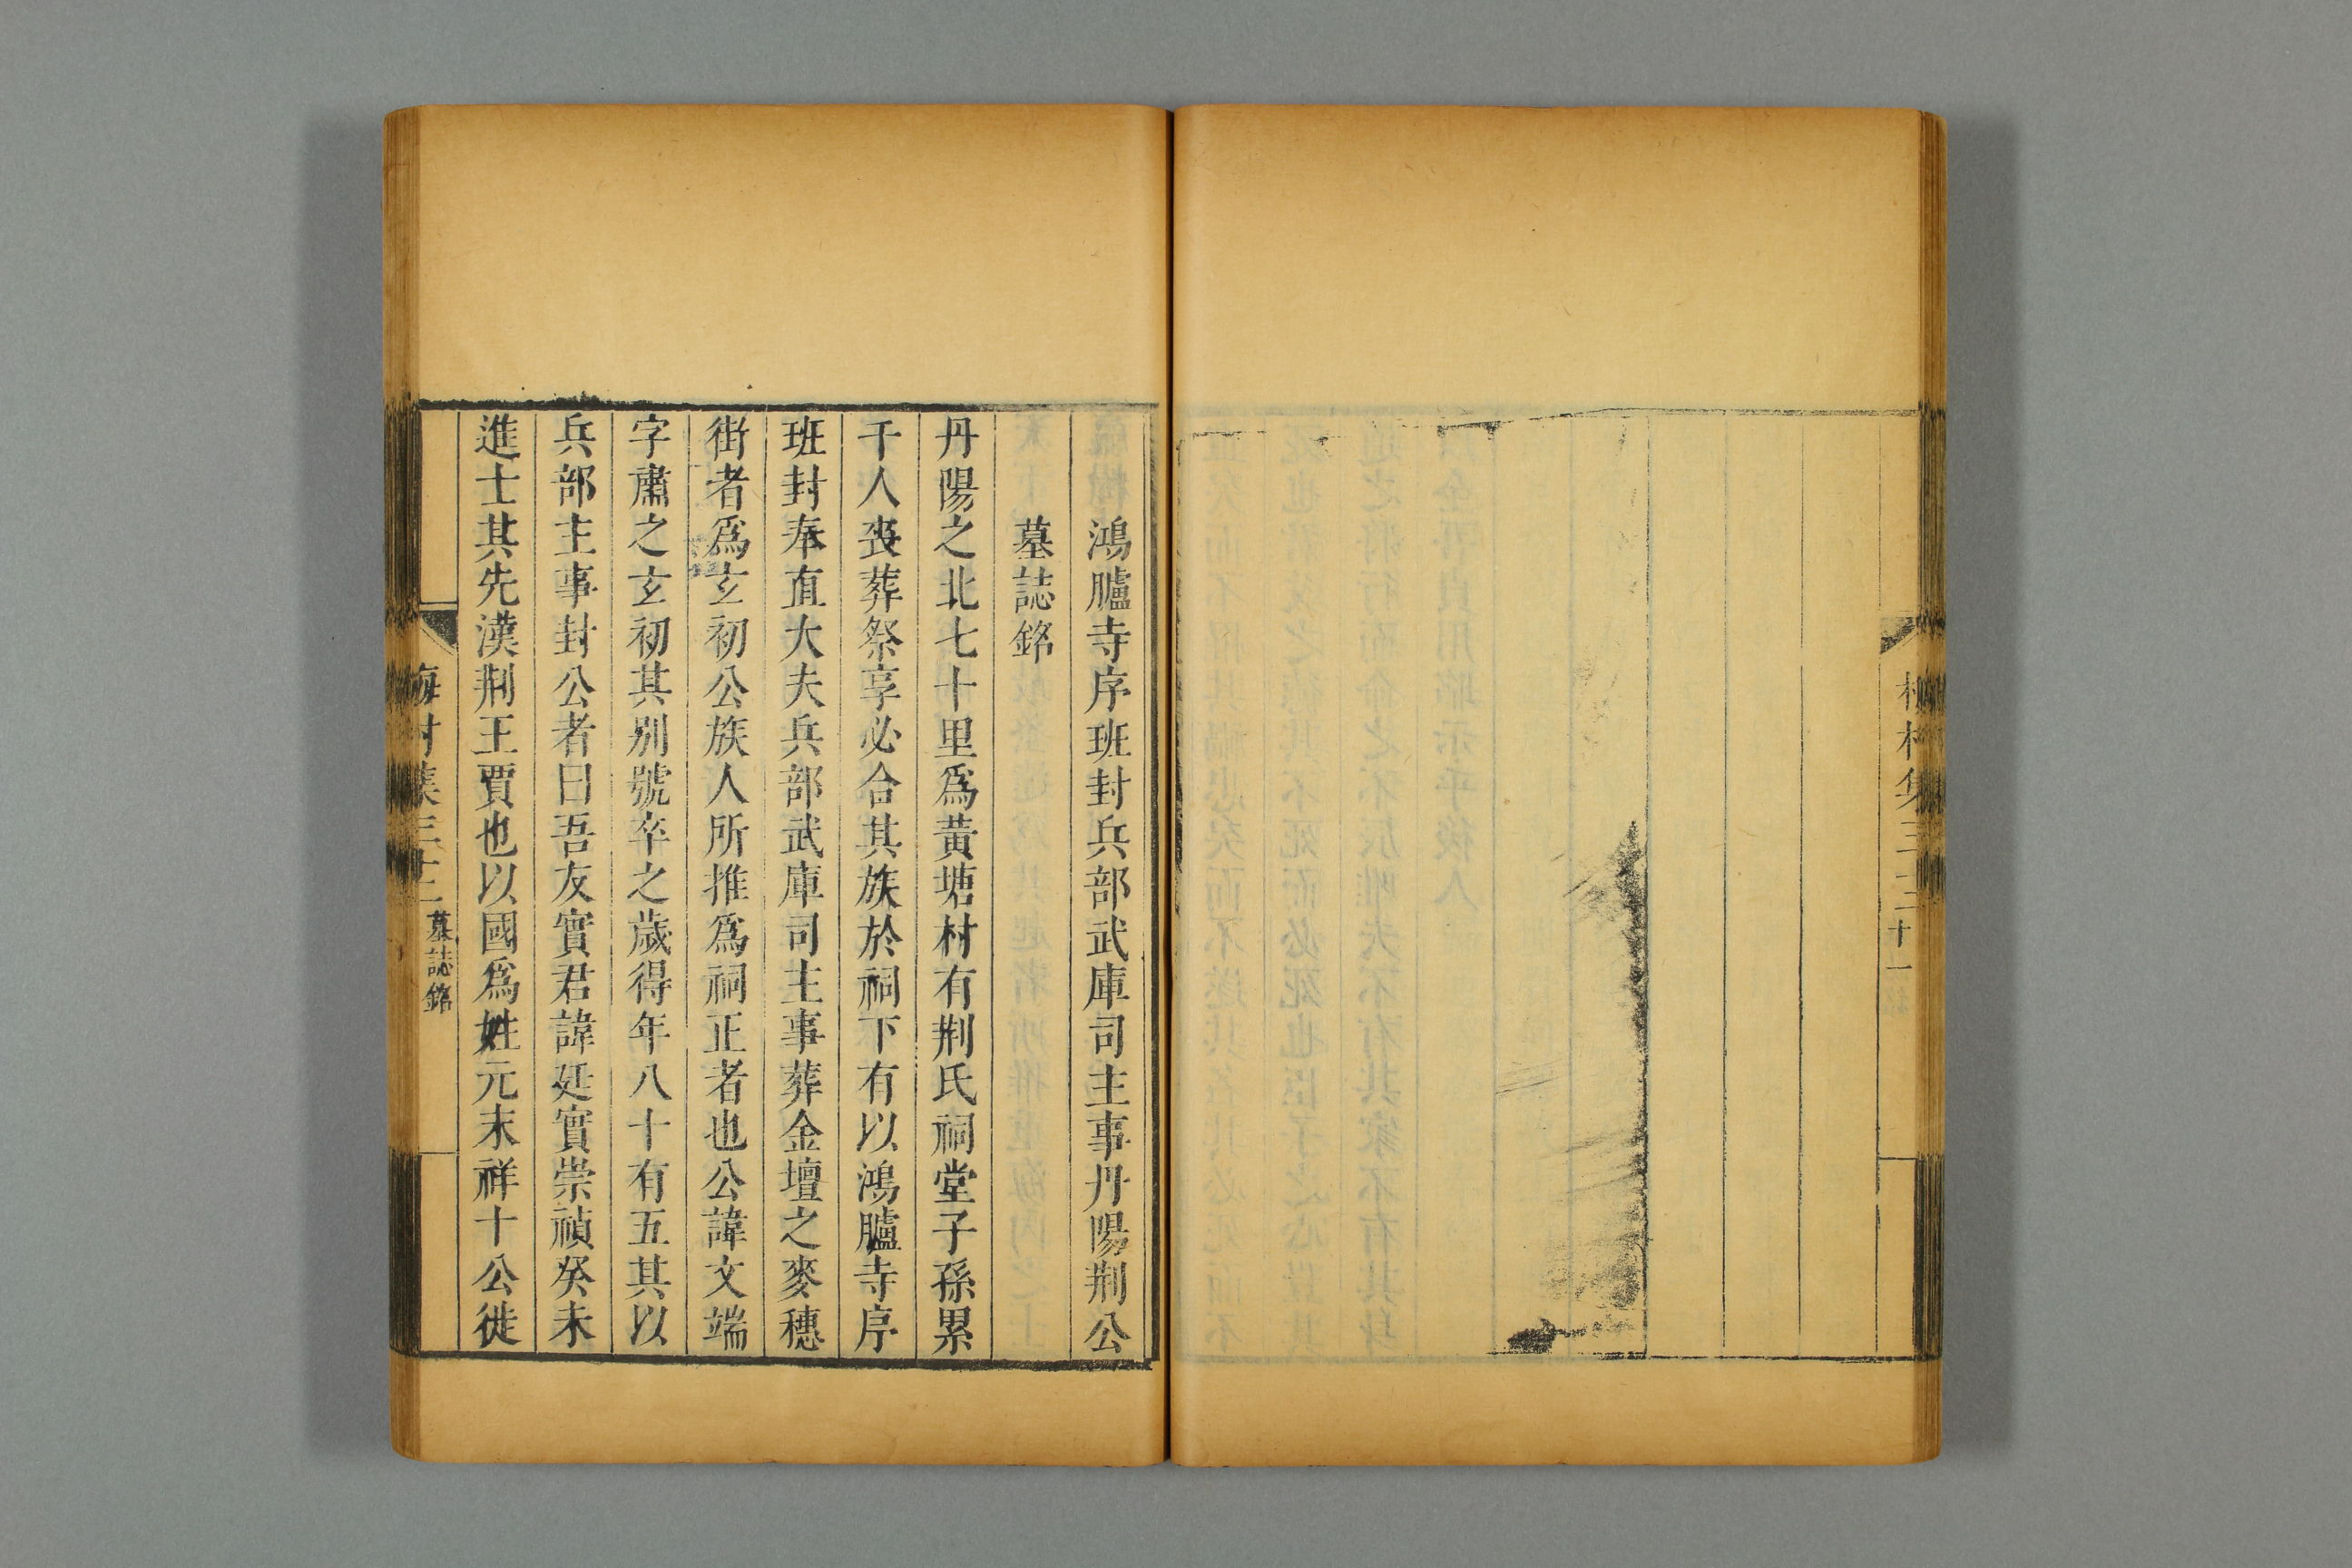 村集三十二
十一
鴻臚寺序班封兵部武庫司主事丹陽荆公
墓誌銘
丹陽之北七十里爲黃塘村有荆氏祠堂子孫累
千人喪葬祭享必合其族於祠下有以鴻臚寺序
班封奉直大夫兵部武庫司主事葬金壇之麥穗
街者爲玄初公族人所推爲祠正者也公諱文端
字肅之玄初其别號卒之歲得年八十有五其以
兵部主事封公者曰吾友實君諱廷實崇禎癸未
進士其先漢荆王賈也以國爲姓元末祥十公徙
梅村集三十二
墓誌銘